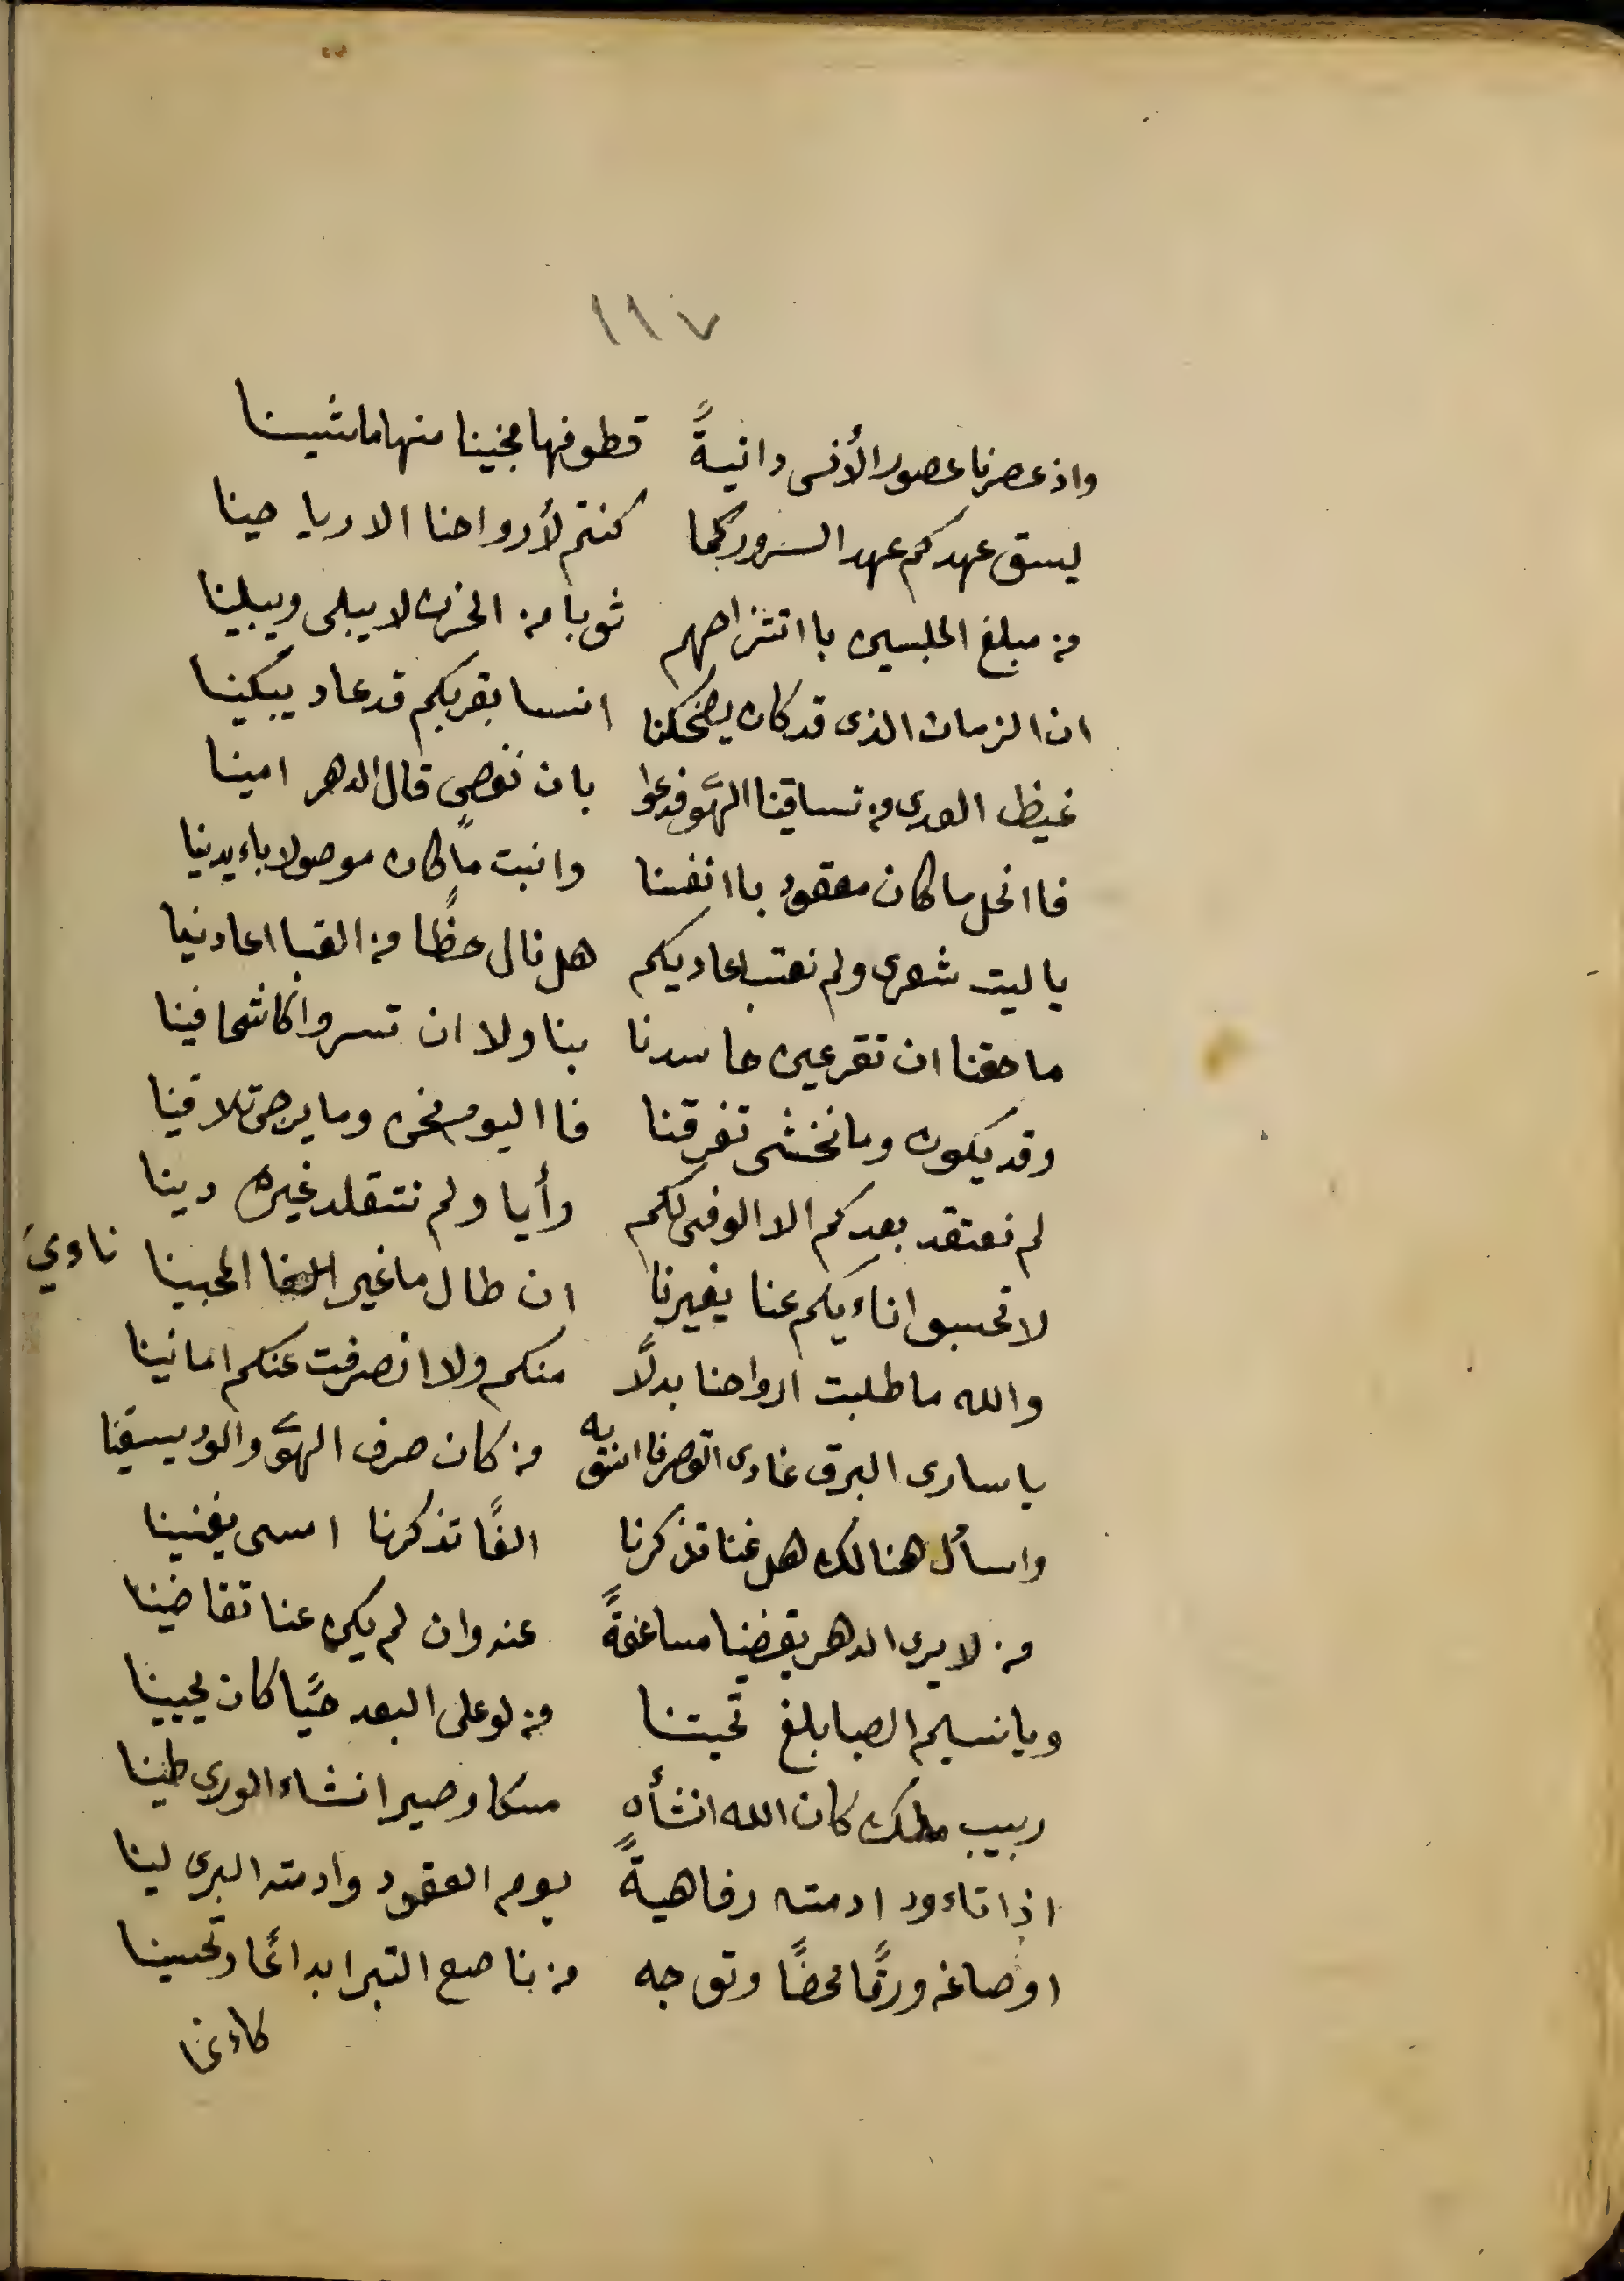 ١١٧
واذ عصرنا عصور الأنس دانيةً قطوفها فجنينا منها ما شينا
ليسق عهدكم عهد السرور كما كنتم لأرواحنا الا رياحينا
من مبلغ الملبسين باانتزاحهم ثوبا من الحزن لا يبلى ويبلينا
ان الزمان الذى قد كان يضحكنا انسا بقربكم قد عاد يبكينا
غيظ العدى من تساقينا الهوَّ فدعوا بان نغصٍ قال الدهر امينا
فاانحل ما كان معقود باانفسنا وانبت ما كان موصولا باءيدينا
يا ليت شعرى ولم نعتب اعاديكم هل نال حظًا من العتبا اعادينا
ما حقنا ان تقر عين حاسدنا بنا ولا ان تسروا كاشحا فينا
وقد يكون وما نخشى تفرقنا فااليوم نحن وما يرجى تلاقينا
لم نعتقد بعدكم الا الوفى لكم رأيا ولم نتقلد غيره دينا
لا تحسبو اناءيكم عنا يغيرنا ان طال ما غير المحبينا ناءويَ
والله ما طلبت ارواحنا بدلًا منكم ولا انصرفت عنكم امانينا
يا سارى البرق غادى القصر فااسق به من كان صرف الهوَّ والود يسقينا
واسأل هنالك هل عنا تذكرنا الفًا تذكرنا امسى يعنينا
من لا يرى الدهر يقضينا مساعفةً عنه وان لم يكن عنا تقاضينا
ويا نسيم الصبا بلغ تحيتنا من لو على البعد حيًا كان يحيينا
ربيب ملك كان الله انشأه مسكا وصير انشاء الورى طينا
اذا تاءود ادمته رفاهيةً يوم العقود وادمته البرى لينا
او صاغه ورقًا محضًا وتوجه من ناصع التبر ابداعًا وتحسينا
كاءنما